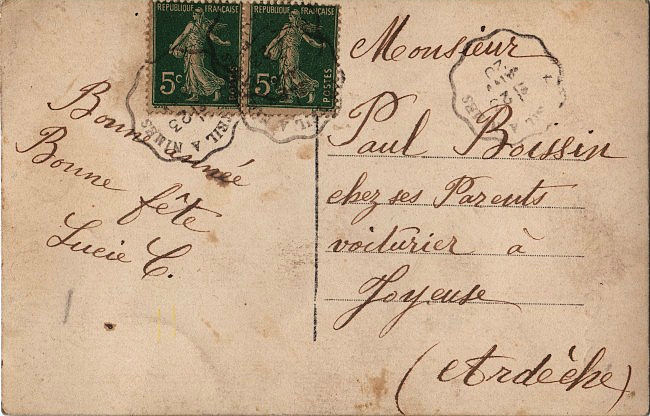 REPUBLIQUE FRANÇAISE
REPUBLIQUE FRANÇAISE
5c
POSTES
5c
POSTES
A NIMES
Bonne année
Bonne fête
Lucie C.
Monsieur
Paul Boissin
chez ses Parents
voiturier à
Joyeuse
(Ardèche)